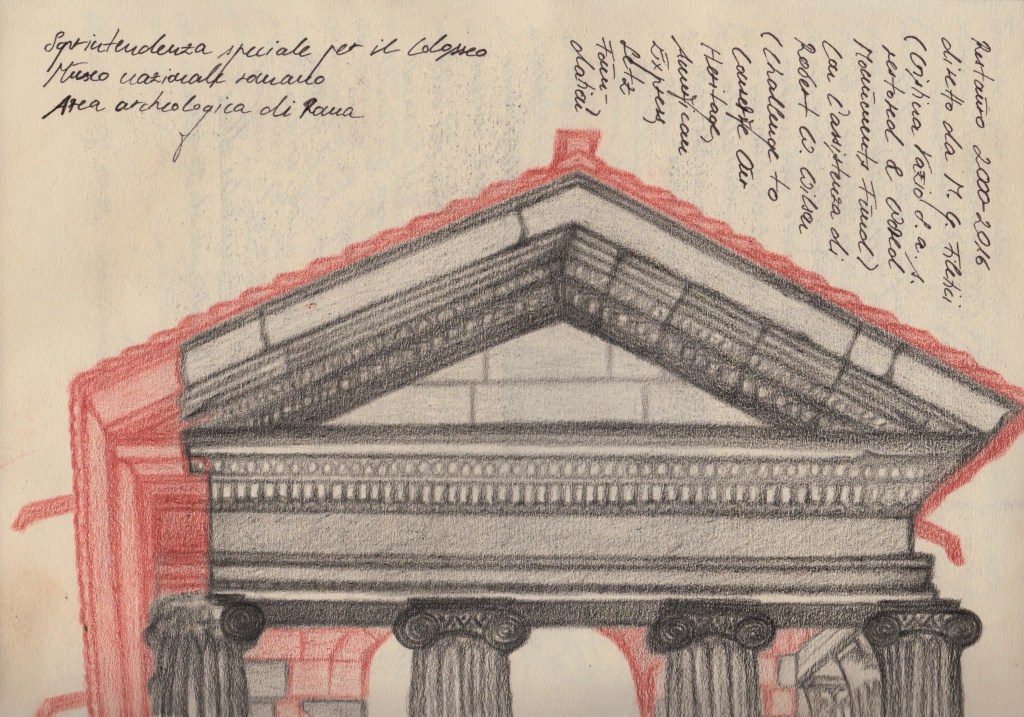 Soprintendenza speciale per il Colosseo
Museo nazionale romano
Area archeologica di Roma
Restauro 2000-2016
diretto da M. G. Filetici
(Cristina Vazio s.a.s.
& World
Monuments Fund)
Con l'assistenza di
Robert W. Wilson
(Challenge to
Conserve Our
Heritage,
American
Express,
Selz
Foun-
dation)